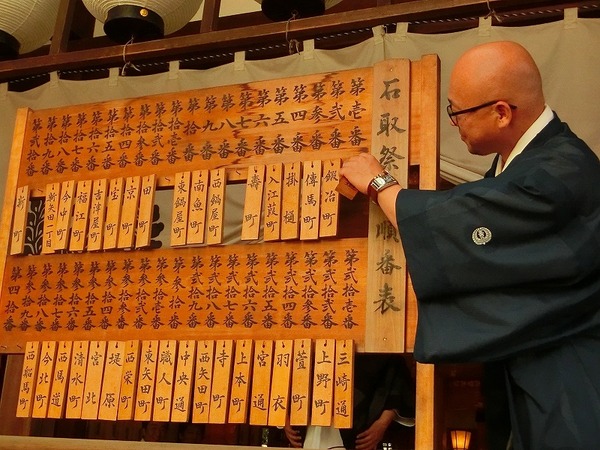 石取祭
順番表
第壱番
第弐番
第参番
第四番
第五番
第六番
第七番
第八番
第九番
第拾番
第拾壱番
第拾弐番
第拾参番
第拾四番
第拾五番
第拾六番
第拾七番
第拾八番
第拾九番
第弐拾番
鍛冶町
傳馬町
掛樋
入江葭町
壽町
西鍋屋町
南魚町
東鍋屋町
田町
京町
宝町
吉津屋町
福江町
今中町
新矢田一丁目
新町
第弐拾壱番
第弐拾弐番
第弐拾参番
第弐拾四番
第弐拾五番
第弐拾六番
第弐拾七番
第弐拾八番
第弐拾九番
第参拾番
第参拾壱番
第参拾弐番
第参拾参番
第参拾四番
第参拾五番
第参拾六番
第参拾七番
第参拾八番
第参拾九番
第四拾番
三崎通
上野町
萱町
羽衣
宮通
上本町
寺町
西矢田町
中央通
職人町
東矢田町
西栄町
堤原
宮北
清水町
西馬道
今北町
西船馬町